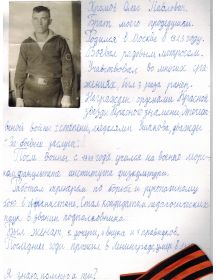 Громов Олег Павлович.
Брат моего прадедушки.
Родился в Москве в 1923 году.
Воевал рядовым матросом.
Участвовал во многих сра-
жениях, был 3 раза ранен.
Награжден орденами Красной
Звезды, Красного Знамени, Отечест-
венной войны 2 степени, медалями Ушакова, дважды
"За боевые заслуги".
После войны с учился на военно-морс-
ком факультете института физкультуры.
Работал тренером по борьбе и рукопашному
бою в Стал кандидатом педагогических
наук в звании подполковника.
Был женат, 2 дочери, внуки и правнуки.
Последние годы прожил в Ленинграде, умер в
Я знаю, помню а ты?